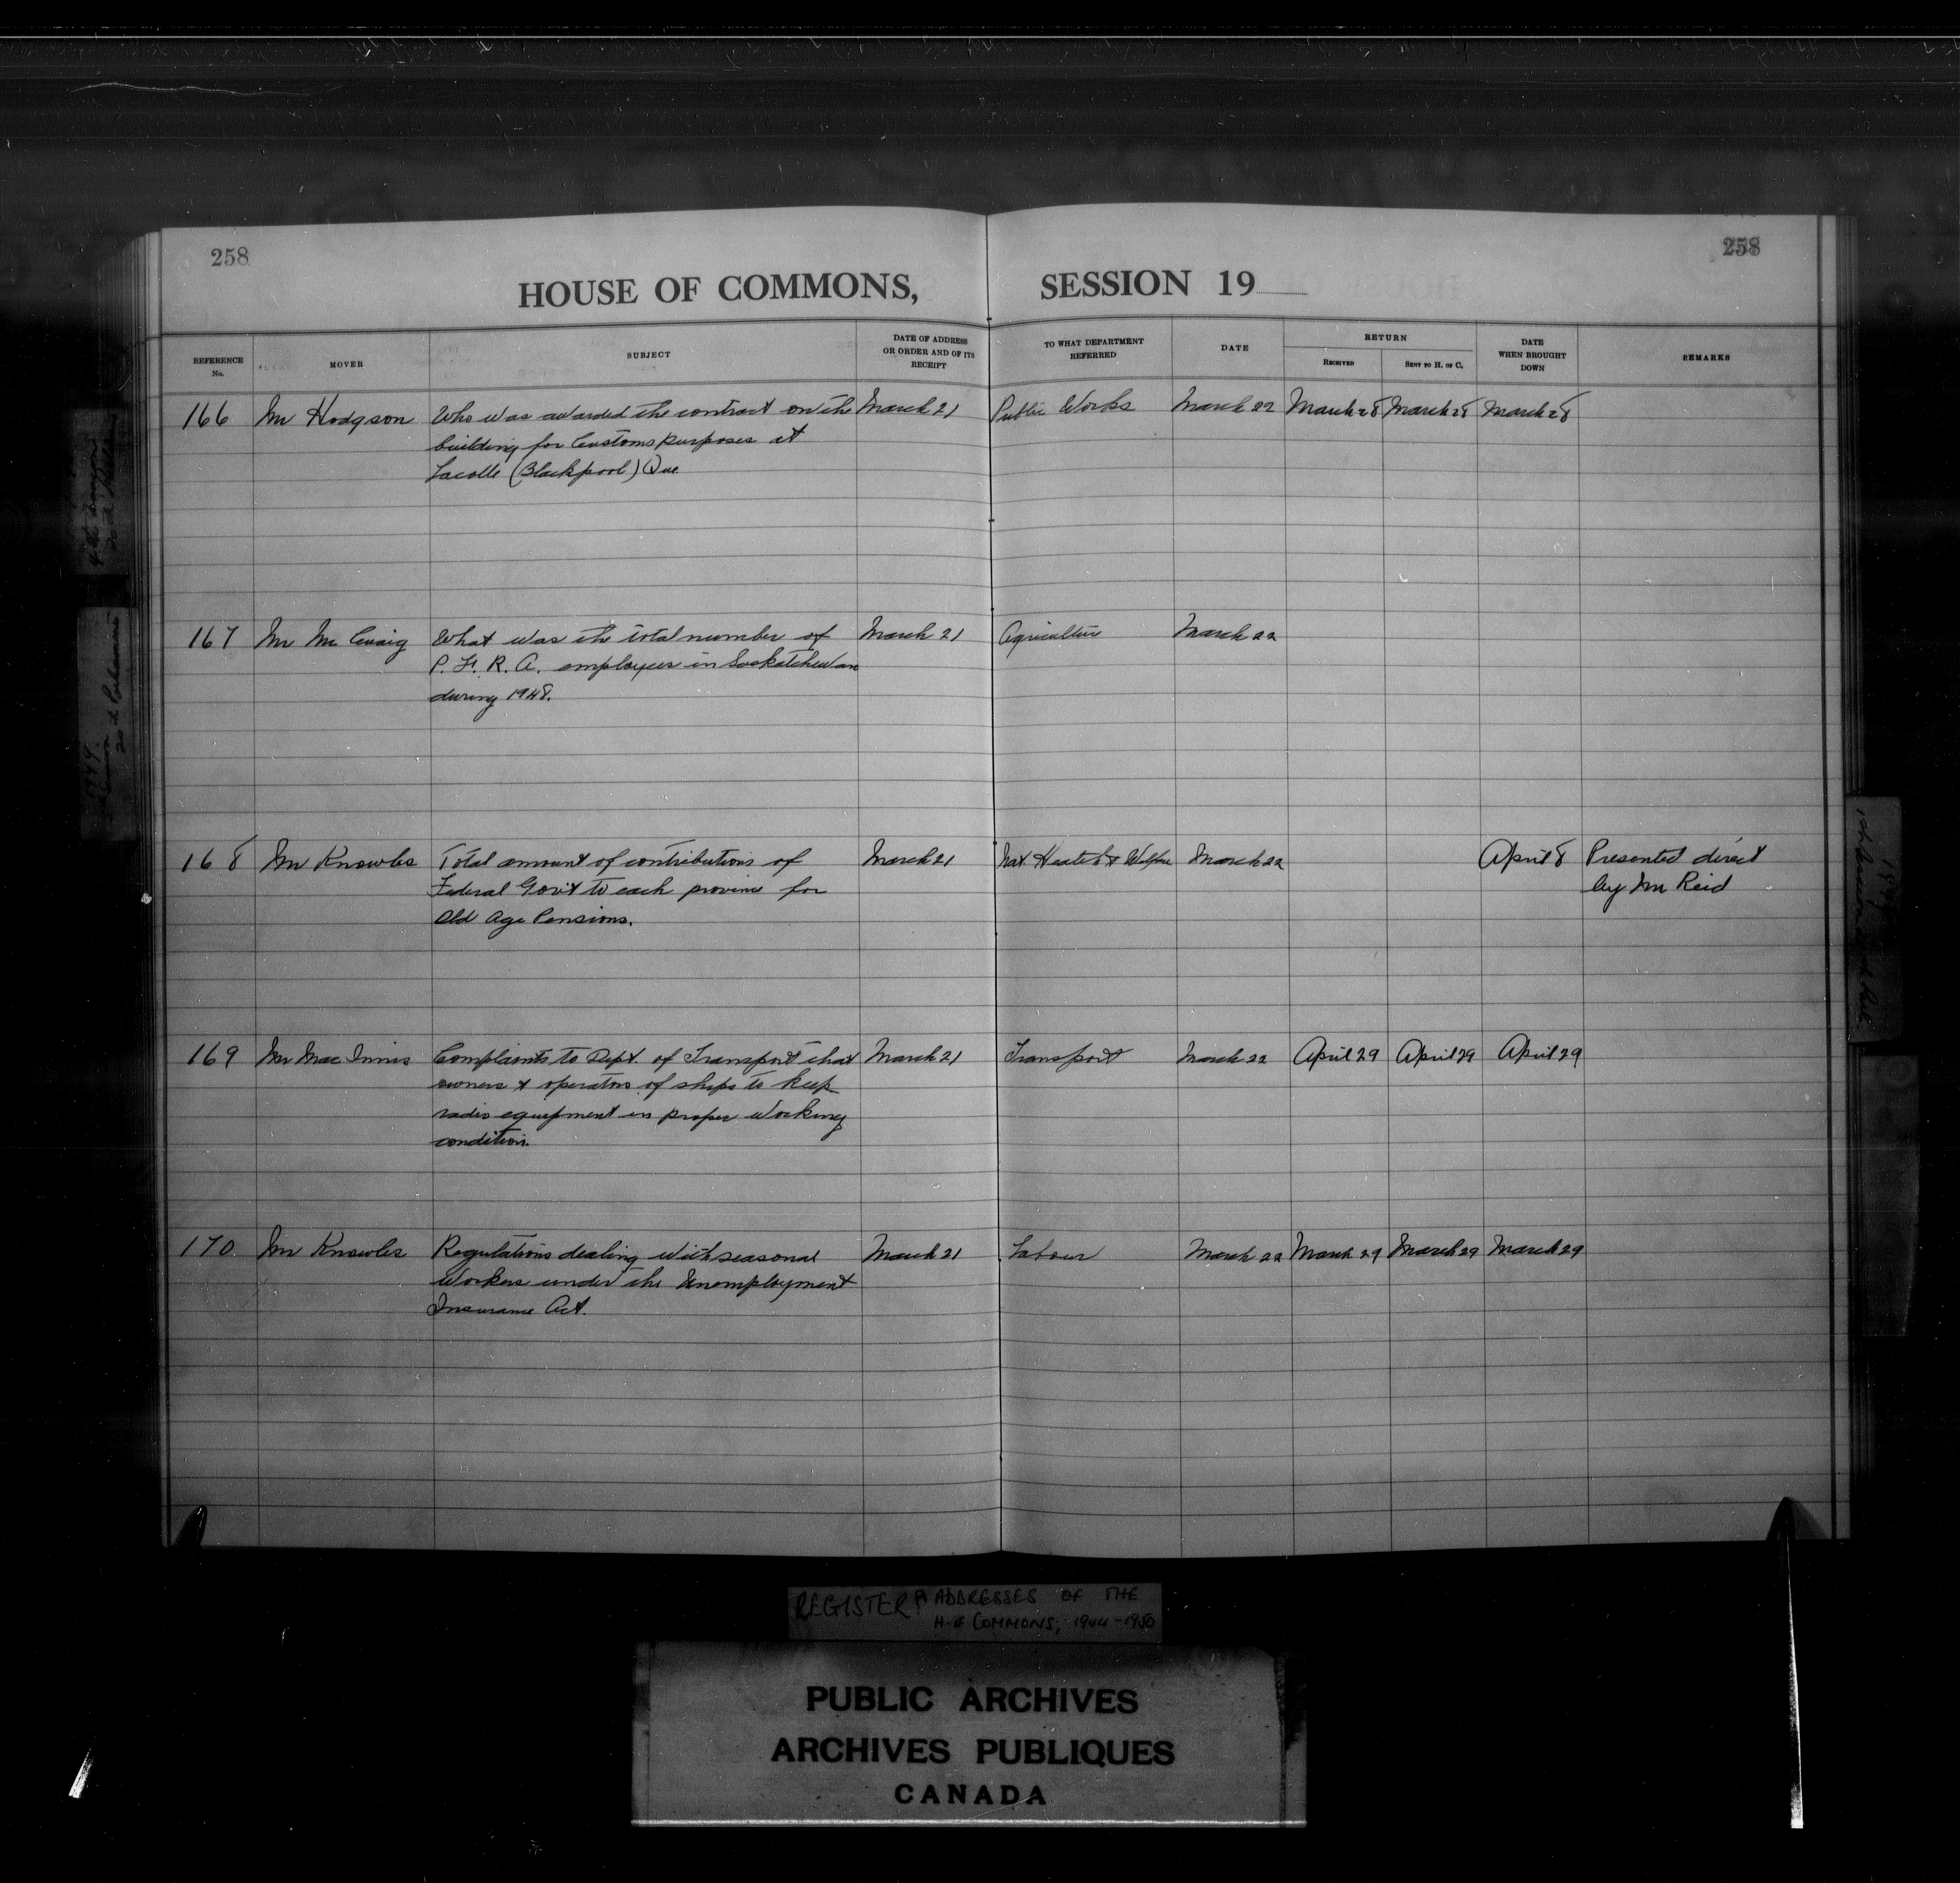 258
258
HOUSE OF COMMONS, SESSION 19
REFERENCE No.
MOVER
SUBJECT
DATE OF ADDRESS OR ORDER AND OF ITS RECEIPT
TO WHAT DEPARTMENT REFERRED
DATE
RETURN
RECEIVED
SENT TO H. OF C.
DATE WHEN BROUGHT DOWN
REMARKS
166 Mr Hodgson Who was awarded the contract on the March 21 Public Works March 22 March 28 March 28 March 28
building for Customs purposes at
Lacolle (Blackpool) Que
167 Mr McCuaig What was the total number of March 21 Agriculture March 22
P. F. R. A. employees in Saskatchewan
during 1948.
168 Mr Knowles Total amount of contributions of March 21 Nat. Health & Welfare March 22 April 8 Presented direct
Federal Gov't to each province for by Mr Reid
Old Age Pensions.
169 Mr MacInnis Complaints to Dept. of Transport that March 21 Transport March 22 April 29 April 29 April 29
owners & operators of ships to keep
radio equipment in proper working
condition.
170 Mr Knowles Regulations dealing with seasonal March 21 Labour March 22 March 29 March 29 March 29
workers under the Unemployment
Insurance Act.
REGISTER OF ADDRESSES OF THE
H. of COMMONS, 1944-1950
PUBLIC ARCHIVES
ARCHIVES PUBLIQUES
CANADA